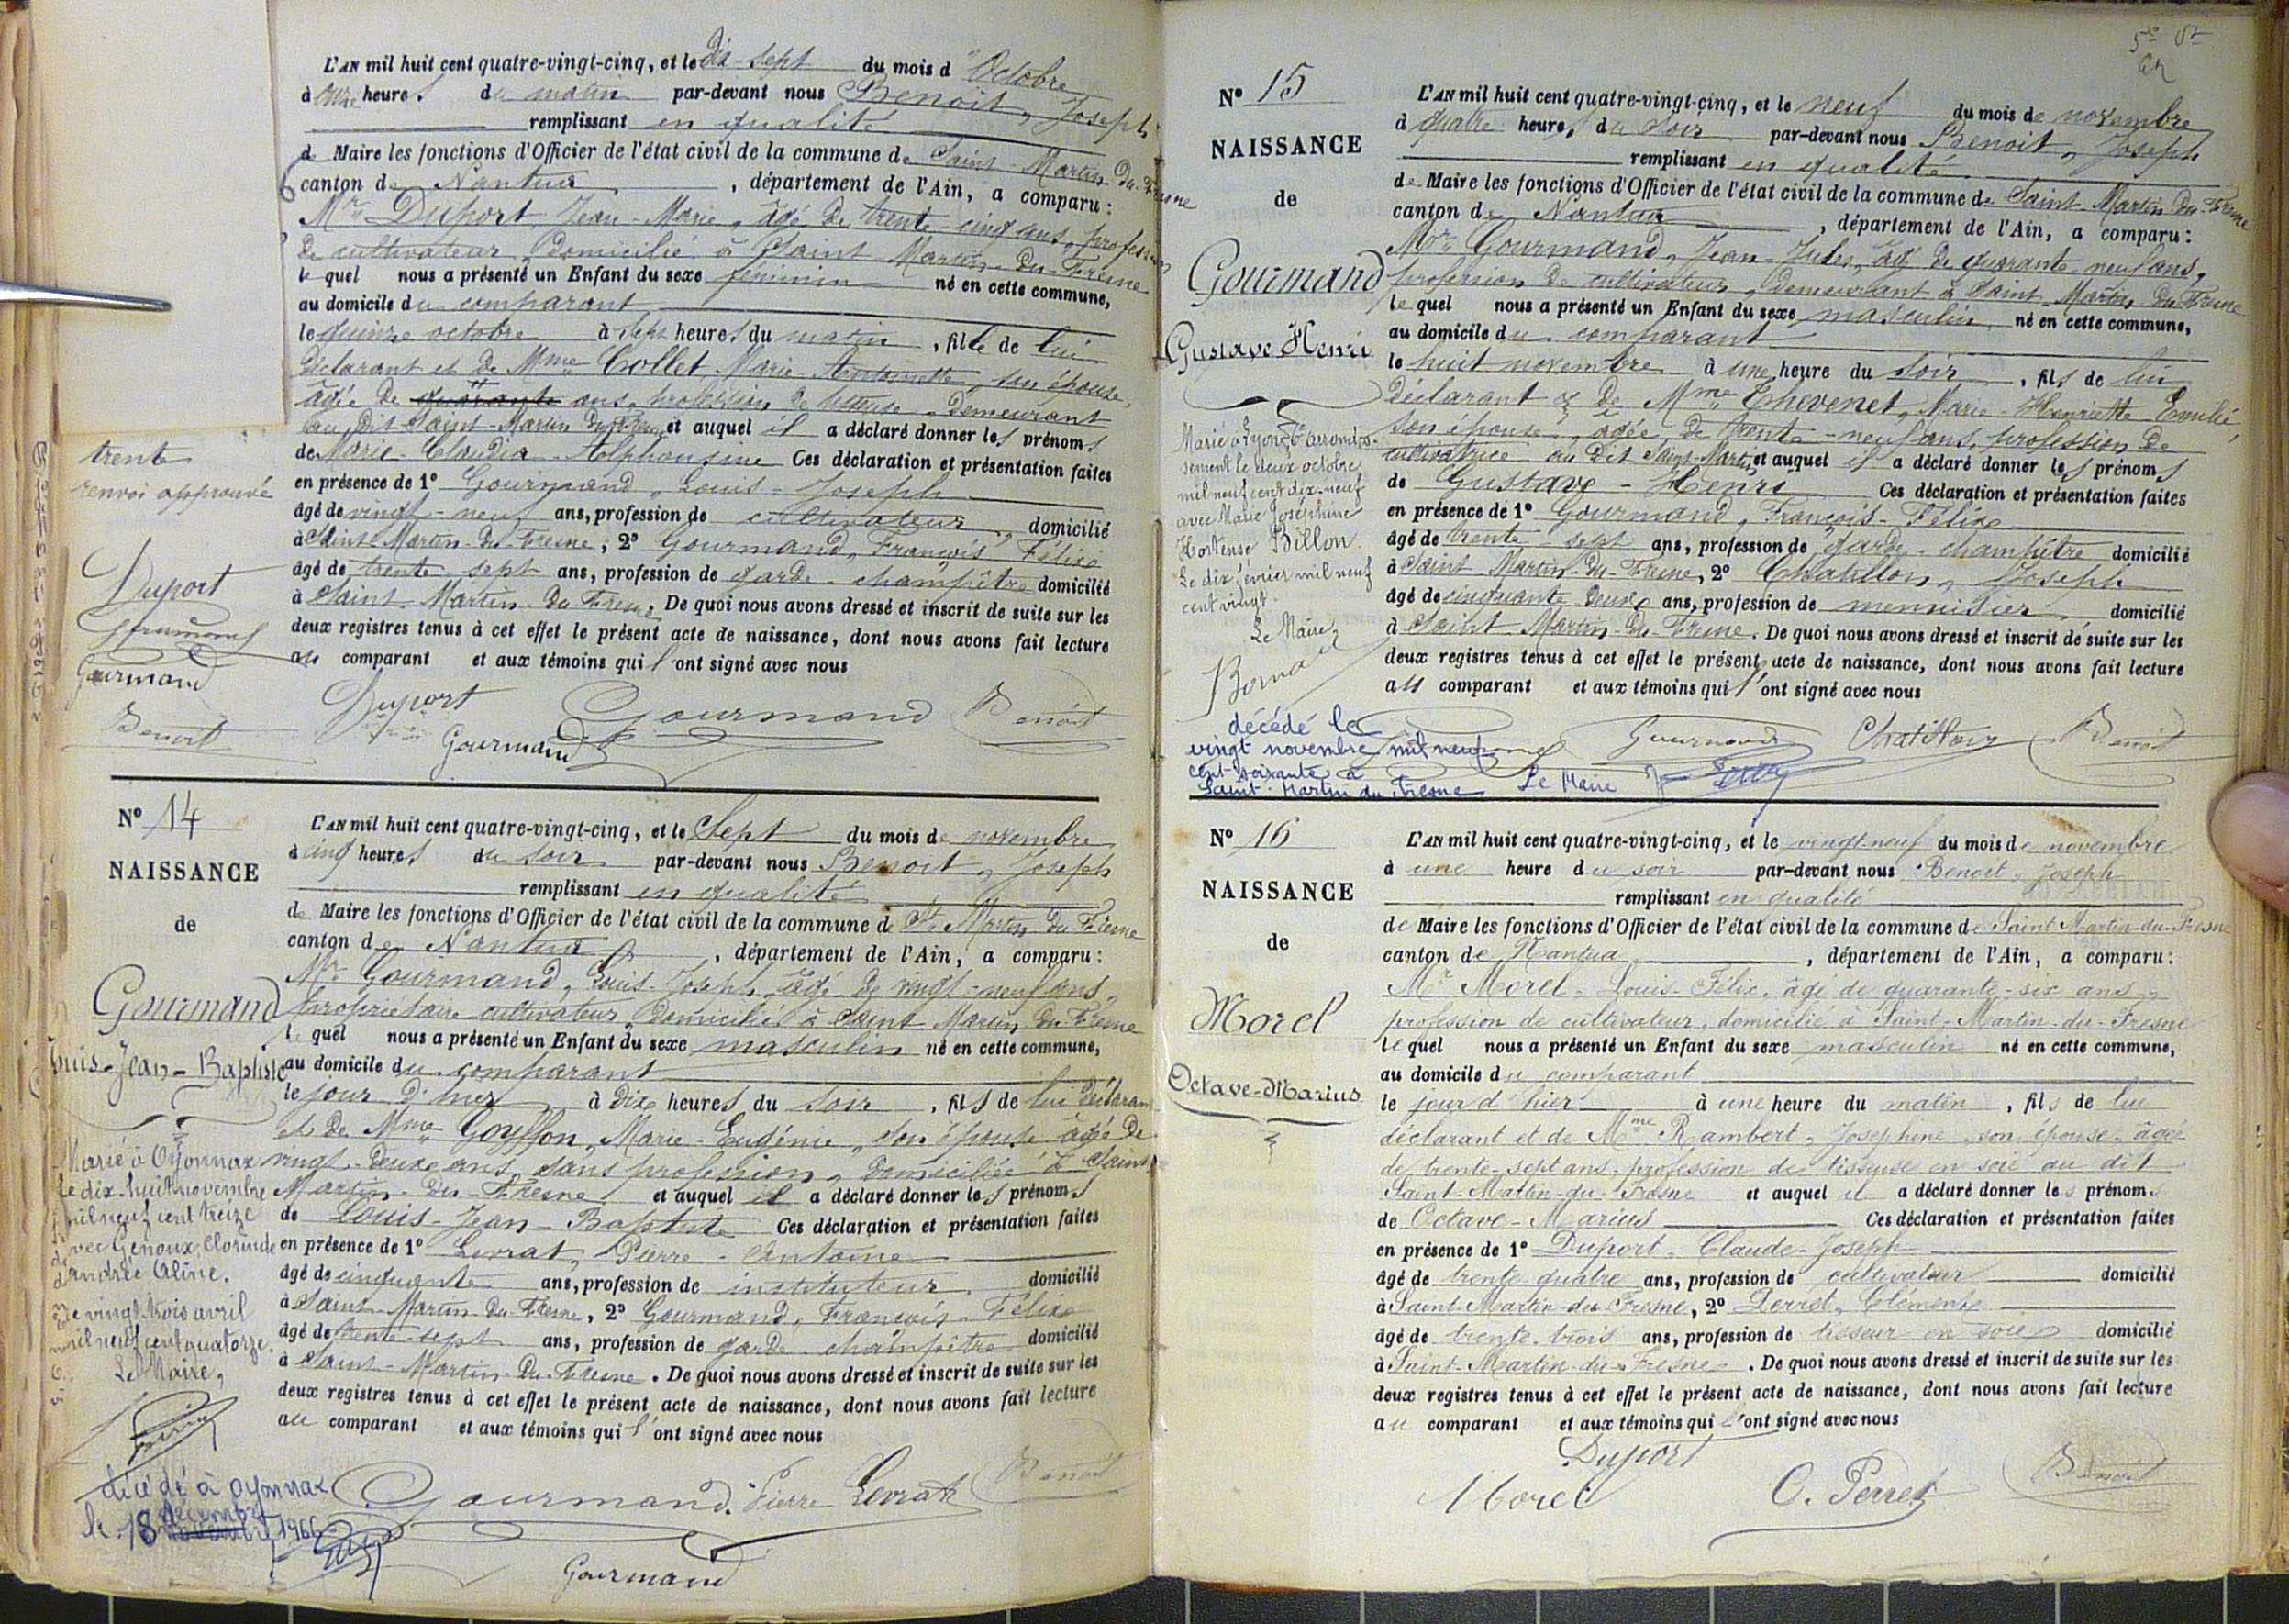 L'AN mil huit cent quatre-vingt-cinq, et le Dix-Sept du mois d'Octobre
à onze heures du matin par-devant nous Benoit, Joseph
remplissant en qualité
de Maire les fonctions d'Officier de l'état civil de la commune de Saint-Martin-du-Fresne
canton de Nantua, département de l'Ain, a comparu:
Mr Duport, Jean-Marie, âgé de trente-cinq ans, profession
de cultivateur, domicilié à Saint-Martin-du-Fresne
lequel nous a présenté un Enfant du sexe féminin né en cette commune,
au domicile du comparant
le quinze octobre à sept heures du matin, fille de lui
déclarant et de Mme Collet, Marie-Antoinette, son épouse,
âgée de quarante ans, profession de tisseuse, demeurant
au dit Saint-Martin du Fresne et auquel il a déclaré donner les prénoms
de Marie-Claudia-Alphonsine Ces déclaration et présentation faites
en présence de 1° Gourmand, Louis-Joseph
âgé de vingt-neuf ans, profession de cultivateur, domicilié
à Saint-Martin-du-Fresne; 2° Gourmand, François Félix
âgé de trente-sept ans, profession de garde-champêtre domicilié
à Saint-Martin-du-Fresne. De quoi nous avons dressé et inscrit de suite sur les
deux registres tenus à cet effet le présent acte de naissance, dont nous avons fait lecture
au comparant et aux témoins qui l'ont signé avec nous
trente
renvoi approuvé
Duport
Gourmand
Gourmand
Benoit
Duport Gourmand Benoit
Gourmand
N° 14
NAISSANCE
de
Gourmand
Louis-Jean-Baptiste
Marié à Oyonnax
le dix-huit novembre
mil neuf cent treize
avec Genoux, Clorinde
Andrée Aline.
Le vingt trois avril
mil neuf cent quatorze.
Le Maire,
décédé à Oyonnax
le 18 décembre 1966
L'AN mil huit cent quatre-vingt-cinq, et le Sept du mois de novembre
à cinq heures du soir par-devant nous Benoit, Joseph
remplissant en qualité
de Maire les fonctions d'Officier de l'état civil de la commune de St Martin du Fresne
canton de Nantua, département de l'Ain, a comparu:
Mr Gourmand, Louis-Joseph, âgé de vingt-neuf ans,
propriétaire cultivateur, domicilié à Saint Martin du Fresne
lequel nous a présenté un Enfant du sexe masculin né en cette commune,
au domicile du comparant
le jour d'hier à dix heures du soir, fils de lui déclarant
et de Mme Goyffon, Marie-Eugénie, son épouse âgée de
vingt-deux ans, sans profession, domiciliée à Saint
Martin-du-Fresne et auquel il a déclaré donner les prénoms
de Louis-Jean-Baptiste Ces déclaration et présentation faites
en présence de 1° Levrat, Pierre-Antoine
âgé de cinquante ans, profession de instituteur domicilié
à Saint-Martin-du-Fresne, 2° Gourmand, François-Félix
âgé de trente-sept ans, profession de garde champêtre domicilié
à Saint-Martin-du-Fresne. De quoi nous avons dressé et inscrit de suite sur les
deux registres tenus à cet effet le présent acte de naissance, dont nous avons fait lecture
au comparant et aux témoins qui l'ont signé avec nous
Gourmand. Pierre Levrat Benoit
Gourmand
N° 15
NAISSANCE
de
Gourmand
Gustave Henri
Marié à Lyon 6e arrondis-
sement le deux octobre
mil neuf cent dix-neuf
avec Marie Joséphine
Hortense Billon.
Le dix février mil neuf
cent vingt.
Le Maire,
décédé le
vingt novembre mil neuf
cent-soixante à
Saint-Martin du Fresne Le Maire
L'AN mil huit cent quatre-vingt-cinq, et le neuf du mois de novembre
à quatre heures du soir par-devant nous Benoit, Joseph
remplissant en qualité
de Maire les fonctions d'Officier de l'état civil de la commune de Saint-Martin-du-Fresne
canton de Nantua, département de l'Ain, a comparu:
Mr Gourmand, Jean-Jules, âgé de quarante neuf ans,
profession de cultivateur, demeurant à Saint-Martin du Fresne
lequel nous a présenté un Enfant du sexe masculin né en cette commune,
au domicile du comparant
le huit novembre à une heure du soir, fils de lui
déclarant & de Mme Thevenet, Marie-Henriette Emilie,
son épouse, âgée de trente-neuf ans, profession de
cultivatrice au dit Saint-Martin et auquel il a déclaré donner les prénoms
de Gustave-Henri Ces déclaration et présentation faites
en présence de 1° Gourmand, François-Félix
âgé de trente-sept ans, profession de garde-champêtre domicilié
à Saint-Martin-du-Fresne, 2° Chatillon, Joseph
âgé de cinquante deux ans, profession de menuisier domicilié
à Saint-Martin-du-Fresne. De quoi nous avons dressé et inscrit de suite sur les
deux registres tenus à cet effet le présent acte de naissance, dont nous avons fait lecture
au comparant et aux témoins qui l'ont signé avec nous
Gourmand Chatillon Benoit
N° 16
NAISSANCE
de
Morel
Octave-Marius
L'AN mil huit cent quatre-vingt-cinq, et le vingt-neuf du mois de novembre
à une heure du soir par-devant nous Benoit, Joseph
remplissant en qualité
de Maire les fonctions d'Officier de l'état civil de la commune de Saint Martin-du-Fresne
canton de Nantua, département de l'Ain, a comparu:
Mr Morel, Louis-Félix, âgé de quarante-six ans,
profession de cultivateur, domicilié à Saint-Martin-du-Fresne
lequel nous a présenté un Enfant du sexe masculin né en cette commune,
au domicile du comparant
le jour d'hier à une heure du matin, fils de lui
déclarant et de Mme Rambert, Josephine, son épouse, âgée
de trente-sept ans, profession de tisseuse en soie au dit
Saint-Martin-du-Fresne et auquel il a déclaré donner les prénoms
de Octave-Marius Ces déclaration et présentation faites
en présence de 1° Duport, Claude-Joseph
âgé de trente quatre ans, profession de cultivateur domicilié
à Saint-Martin-du-Fresne, 2° Perret, Clément
âgé de trente-trois ans, profession de tisseur en soie domicilié
à Saint-Martin-du-Fresne. De quoi nous avons dressé et inscrit de suite sur les
deux registres tenus à cet effet le présent acte de naissance, dont nous avons fait lecture
au comparant et aux témoins qui l'ont signé avec nous
Duport
Morel C. Perret Benoit